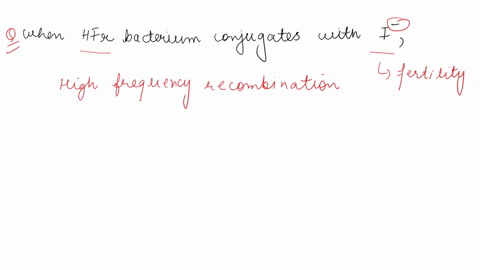 Q when HFr bacterium conjugates with F⁻,
High frequency recombination ↳ fertility